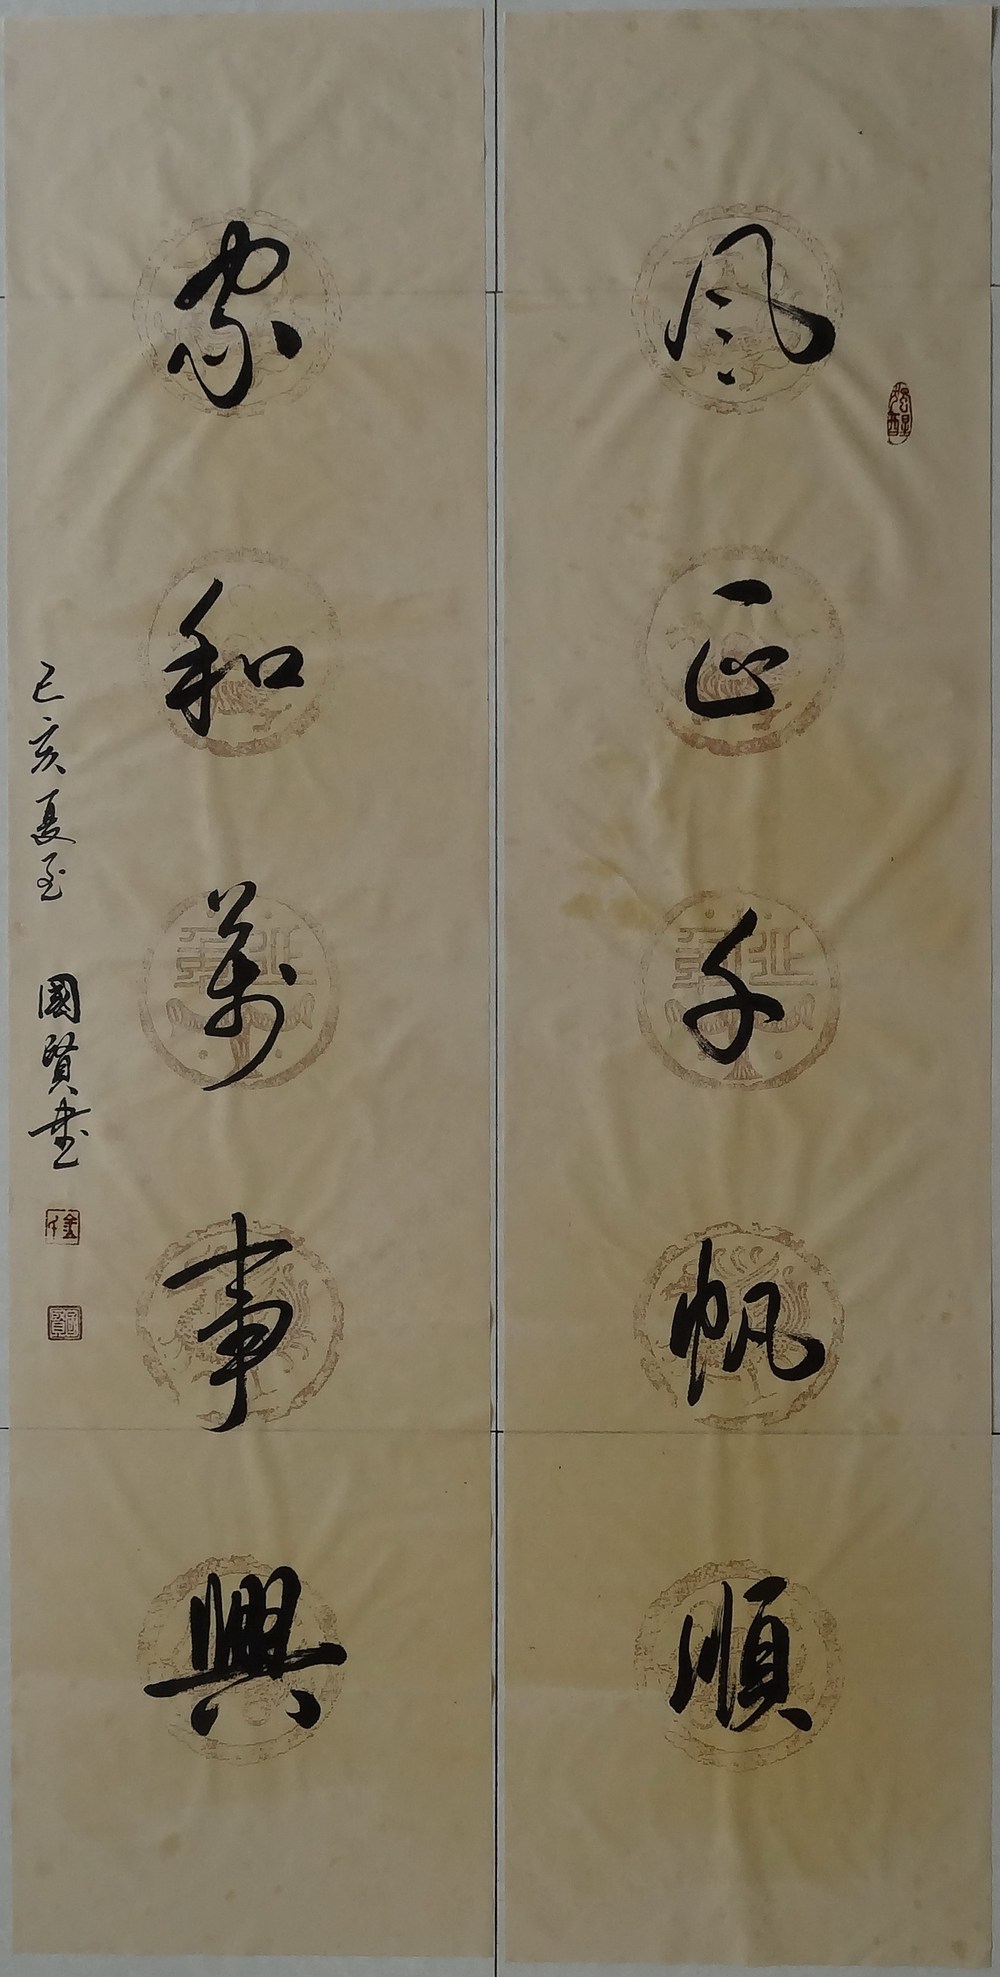 风正千帆順
家和萬事興
己亥夏至 國賢书